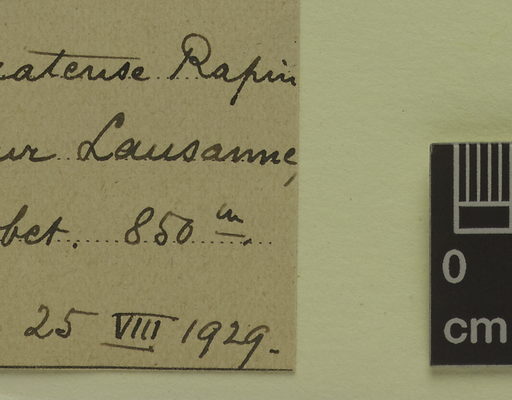 ratense Rapin
ur Lausanne,
bct. 850 m.
25 VIII 1929.
0
cm